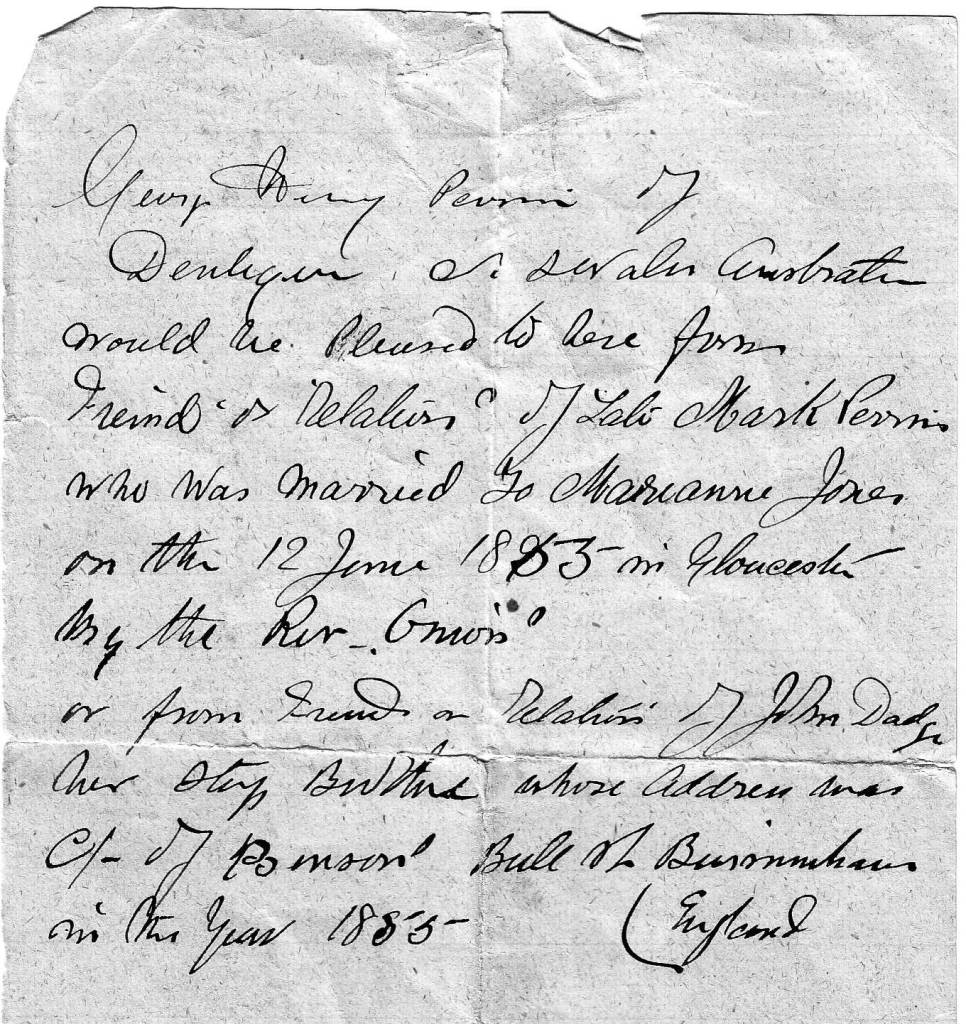 George Henry Perrin of
Denligum N. S Wales Australia
would be Pleased to here from
Freind or Relations of Late Mark Perrin
who was married to Marianne Jones
on the 12 June 1855 in Gloucester
By the Rev
or from Freinds or Relations of John Dadge
her step Brother whose Address was
C/- of Bensons Bull St Birmingham
in the Year 1855 (England